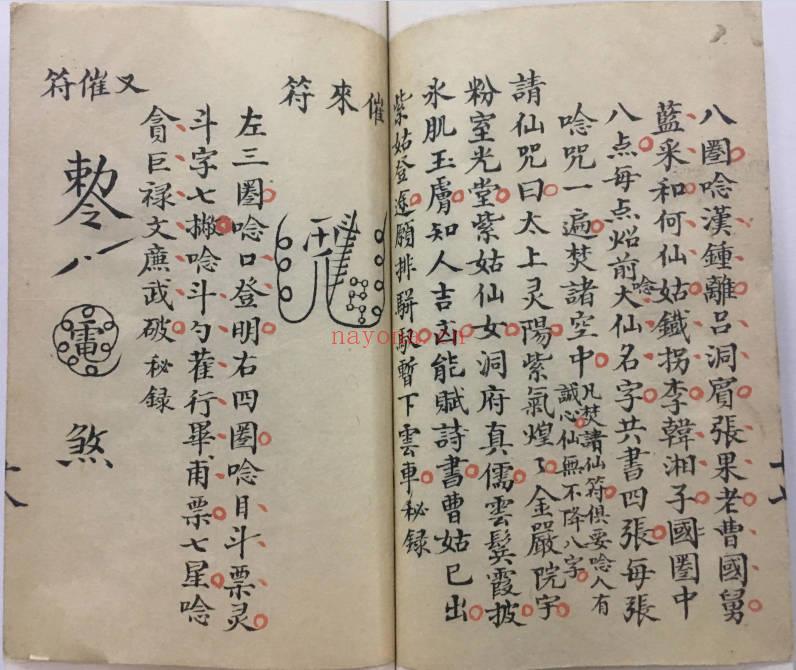 八圈唸漢鍾離吕洞賓張果老曹國舅
藍采和何仙姑鐵拐李韓湘子國圈中
八点每点炤前唸大仙名字共書四張每張
唸咒一遍焚諸空中凡焚諸仙符俱要唸八有
誠心仙無不降八字
請仙咒曰太上灵陽紫氣煌々金嚴院宇
粉室光堂紫姑仙女洞府真儒雲鬓霞披
氷肌玉膚知人吉凶能賦詩書曹姑已出
紫姑登途願排駢馭暫下雲車秘録
催來符
左三圈唸口登明右四圈唸目斗票灵
斗字七撇唸斗勺雚行畢甫票七星唸
貪巨禄文廉武破秘録
又催符
勅令
雷
煞
nayona.cn